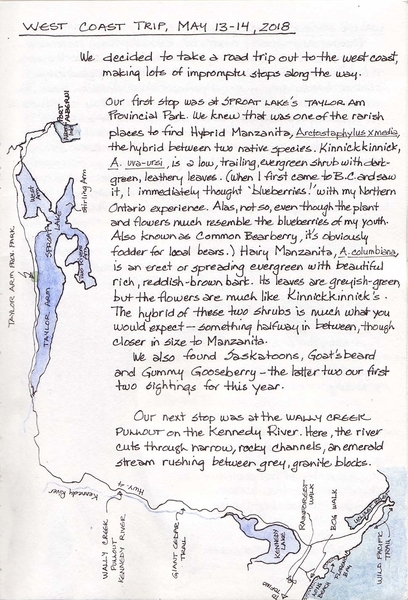 WEST COAST TRIP, MAY 13-14, 2018
We decided to take a road trip out to the west coast,
making lots of impromptu stops along the way.
Our first stop was at SPROAT LAKE'S TAYLOR Arm
Provincial Park. We knew that was one of the rarish
places to find Hybrid Manzanita, Arctostaphylus x media,
the hybrid between two native species. Kinnickkinnick,
A. uva-ursi, is a low, trailing, evergreen shrub with dark-
green, leathery leaves. (When I first came to B.C. and saw
it, I immediately thought "blueberries!" with my Northern
Ontario experience. Alas, not so, even though the plant
and flowers much resemble the blueberries of my youth.
Also known as Common Bearberry, it's obviously
fodder for local bears.) Hairy Manzanita, A. columbiana,
is an erect or spreading evergreen with beautiful
rich, reddish-brown bark. Its leaves are greyish-green,
but the flowers are much like Kinnickkinnick's.
The hybrid of these two shrubs is much what you
would expect — something halfway in between, though
closer in size to Manzanita.
We also found Saskatoons, Goat's beard
and Gummy Gooseberry — the latter two our first
two sightings for this year.
Our next stop was at the WALLY CREEK
PULLOUT on the Kennedy River. Here, the river
cuts through narrow, rocky channels, an emerald
stream rushing between grey, granite blocks.
PORT
ALBERNI
Stirling Arm
West
Arm
SPROAT
LAKE
Two Rivers
Arm
TAYLOR ARM PROV. PARK
TAYLOR ARM
Kennedy River
Hwy. 4
WALLY CREEK
PULLOUT
KENNEDY RIVER
GIANT CEDAR
TRAIL
KENNEDY
LAKE
RAINFOREST
WALK
BOG WALK
TOFINO
BEACH
FLORENCIA
BAY
WILD PACIFIC
TRAIL